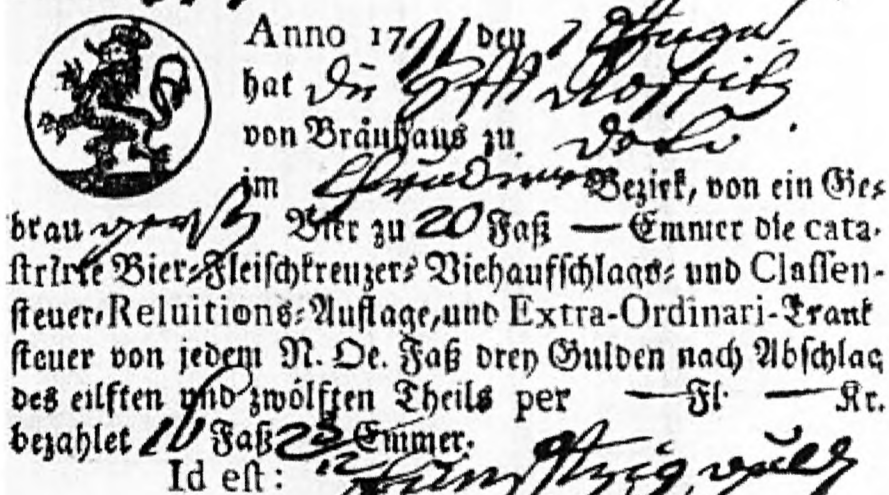 Anno 1771 den 7
hat die
von Bräuhaus zu do to.
im Chrudimer Bezirk, von ein Ge-
bräu Bier zu 20 Faß — Emmer die cata-
strirte Bier-Fleischkreuzer- Viehaufschlags- und Classen-
steuer-Reluitions-Auflage, und Extra-Ordinari-Trank
steuer von jedem N. Oe. Faß drey Gulden nach Abschlag
des eilften und zwölften Theils per — Fl. — Kr.
bezahlet Faß Emmer.
Id est: